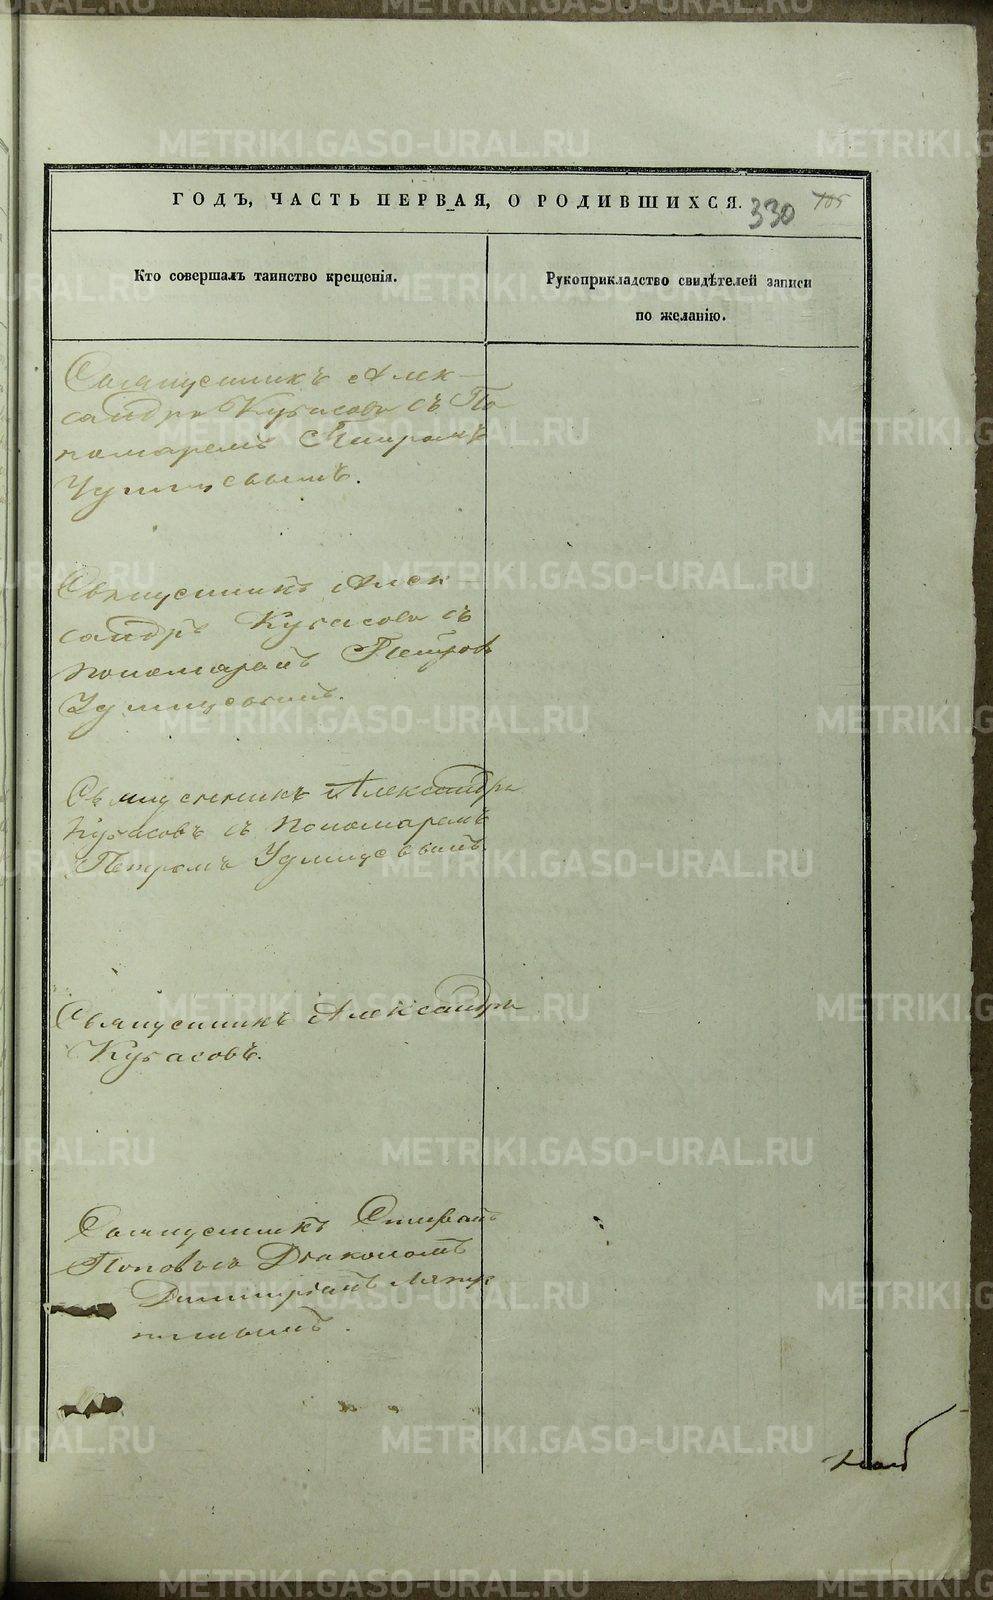 ГОДЪ, ЧАСТЬ ПЕРВАЯ, О РОДИВШИХСЯ.
330
105
Кто совершалъ таинство крещенія.
Рукоприкладство свидѣтелей записи
по желанію.
Священникъ Алек-
сандръ Кубасовъ съ По
номаремъ Петромъ
Священникъ Алек
сандръ Кубасовъ съ
пономаремъ Петром
Священникъ Александръ
Кубасовъ съ Пономаремъ
Петромъ
Священникъ Александръ
Кубасовъ.
Священникъ Стефанъ
Поповъ съ Діакономъ
Димитріемъ
METRIKI.GASO-URAL.RU